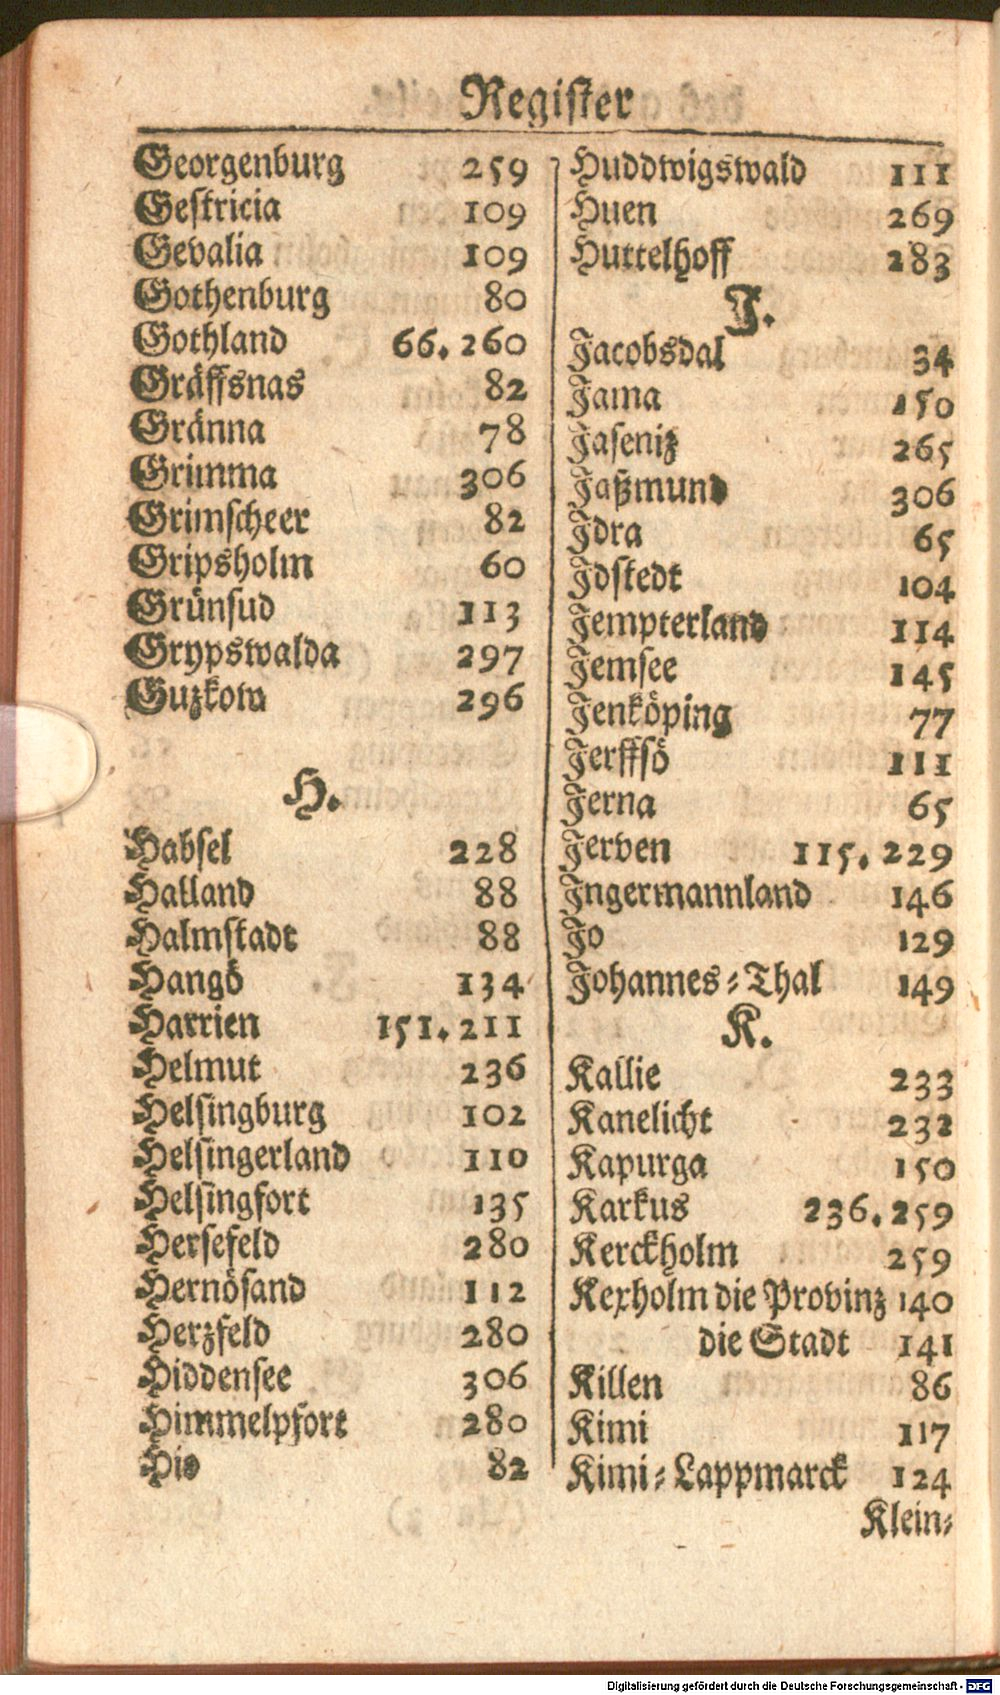 Register
Georgenburg 259
Gestricia 109
Gevalia 109
Gothenburg 80
Gothland 66. 260
Gräffsnas 82
Gränna 78
Grimma 306
Grimscheer 82
Gripsholm 60
Grünsud 113
Grypswalda 297
Guzkow 296
H.
Habsel 228
Halland 88
Halmstadt 88
Hangö 134
Harrien 151. 211
Helmut 236
Helsingburg 102
Helsingerland 110
Helsingfort 135
Hersefeld 280
Hernösand 112
Herzfeld 280
Hiddensee 306
Himmelpfort 280
Hio 82
Huddwigswald 111
Huen 269
Huttelhoff 283
J.
Jacobsdal 34
Jama 150
Jaseniz 265
Jaßmund 306
Jdra 65
Jdstedt 104
Jempterland 114
Jemsee 145
Jenköping 77
Jerffsö 111
Jerna 65
Jerven 115. 229
Jngermannland 146
Jo 129
Johannes-Thal 149
K.
Kallie 233
Kanelicht 232
Kapurga 150
Karkus 236. 259
Kerckholm 259
Kexholm die Provinz 140
die Stadt 141
Killen 86
Kimi 117
Kimi-Lappmarck 124
Klein-
Digitalisierung gefördert durch die Deutsche Forschungsgemeinschaft - DFG